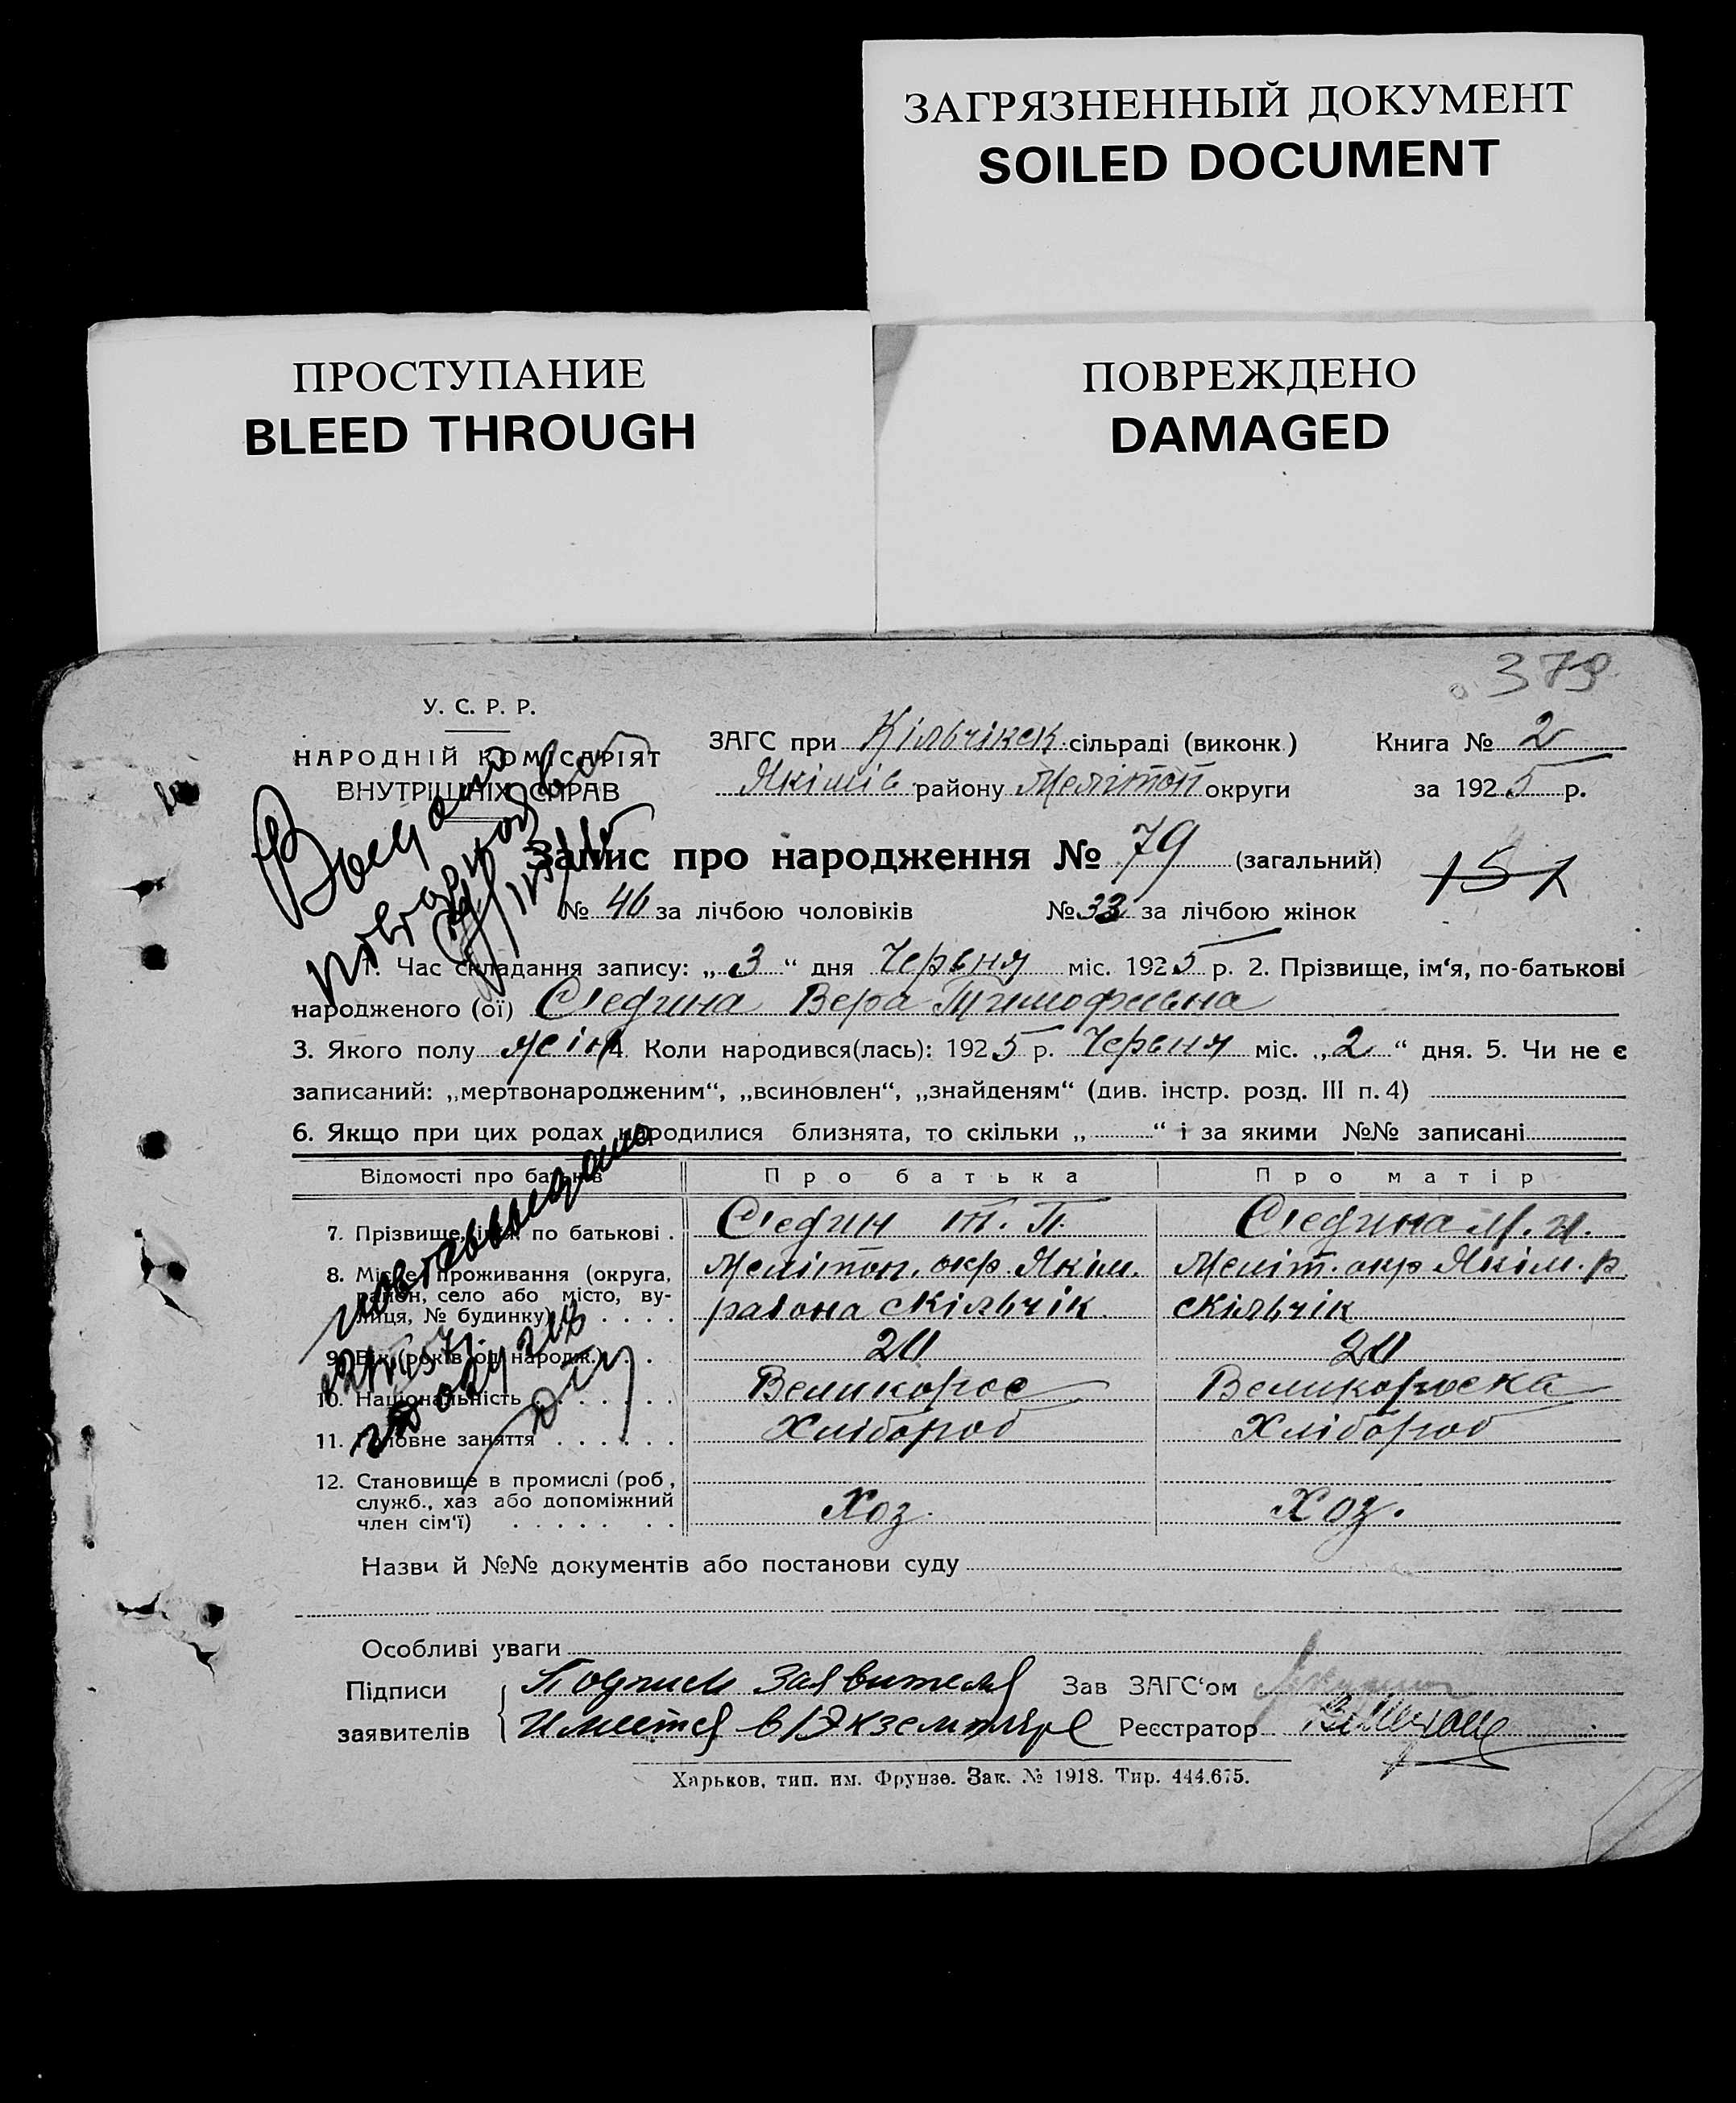 ЗАГРЯЗНЕННЫЙ ДОКУМЕНТ
SOILED DOCUMENT
ПРОСТУПАНИЕ
BLEED THROUGH
ПОВРЕЖДЕНО
DAMAGED
379
У. С. Р. Р.
НАРОДНІЙ КОМІСАРІЯТ
ВНУТРІШНІХ СПРАВ
ЗАГС при Кільчікск. сільраді (виконк.) Книга № 2
Якімів району Мелітоп округи за 1925 р.
Запис про народження № 79 (загальний)
151
№ 46 за лічбою чоловіків № 33 за лічбою жінок
1. Час складання запису: „3“ дня Червня міс. 1925 р. 2. Прізвище, ім‘я, по-батькові
народженого (ої) Следина Вера Тимофиевна
3. Якого полу жін 4. Коли народився(лась): 1925 р. Червня міс. „2“ дня. 5. Чи не є
записаний: „мертвонародженим“, „всиновлен“, „знайденям“ (див. інстр. розд. III п. 4)
6. Якщо при цих родах народилися близнята, то скільки „ “ і за якими №№ записані
Відомості про батьків Про батька Про матір
7. Прізвище, ім‘я, по батькові . Следин Т. П. Следина М. И.
8. Місце проживання (округа, Мелітоп. окр. Якім. Меліт. окр Якім. р
район, село або місто, ву-
лиця, № будинку) . . . . района с Кільчік. с Кільчік
9. Вік (років од народж.) . . 20 20
10. Національність . . . . . . Великорос Великороска
11. Головне заняття . . . . . . Хлібороб Хлібороб
12. Становище в промислі (роб.,
служб., хаз або допоміжний Хоз. Хоз.
член сім‘ї) . . . . . . .
Назви й №№ документів або постанови суду
Особливі уваги
Підписи Подписи Заявителя Зав ЗАГС‘ом
заявителів Имеется в 1 Экземпляре Реєстратор
Харьков, тип. им. Фрунзе. Зак. № 1918. Тир. 444.675.